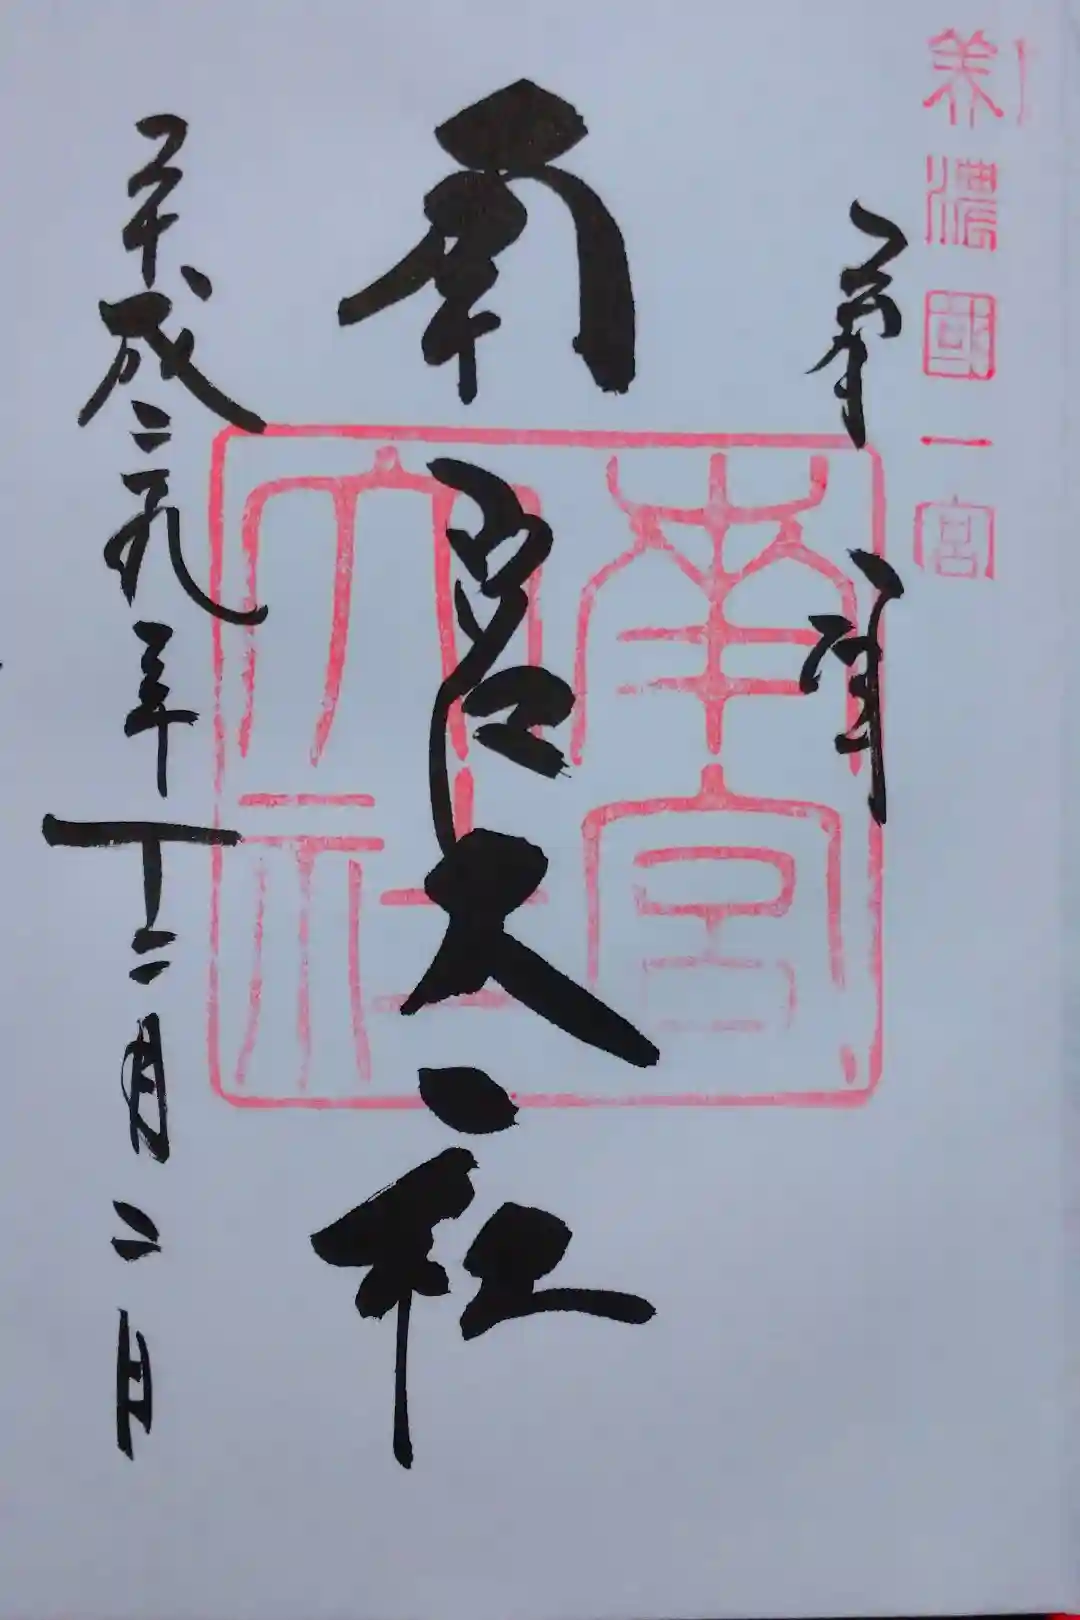 美濃國一宮
奉拝
南宮大社
南宮大社
平成二十九年十二月二日